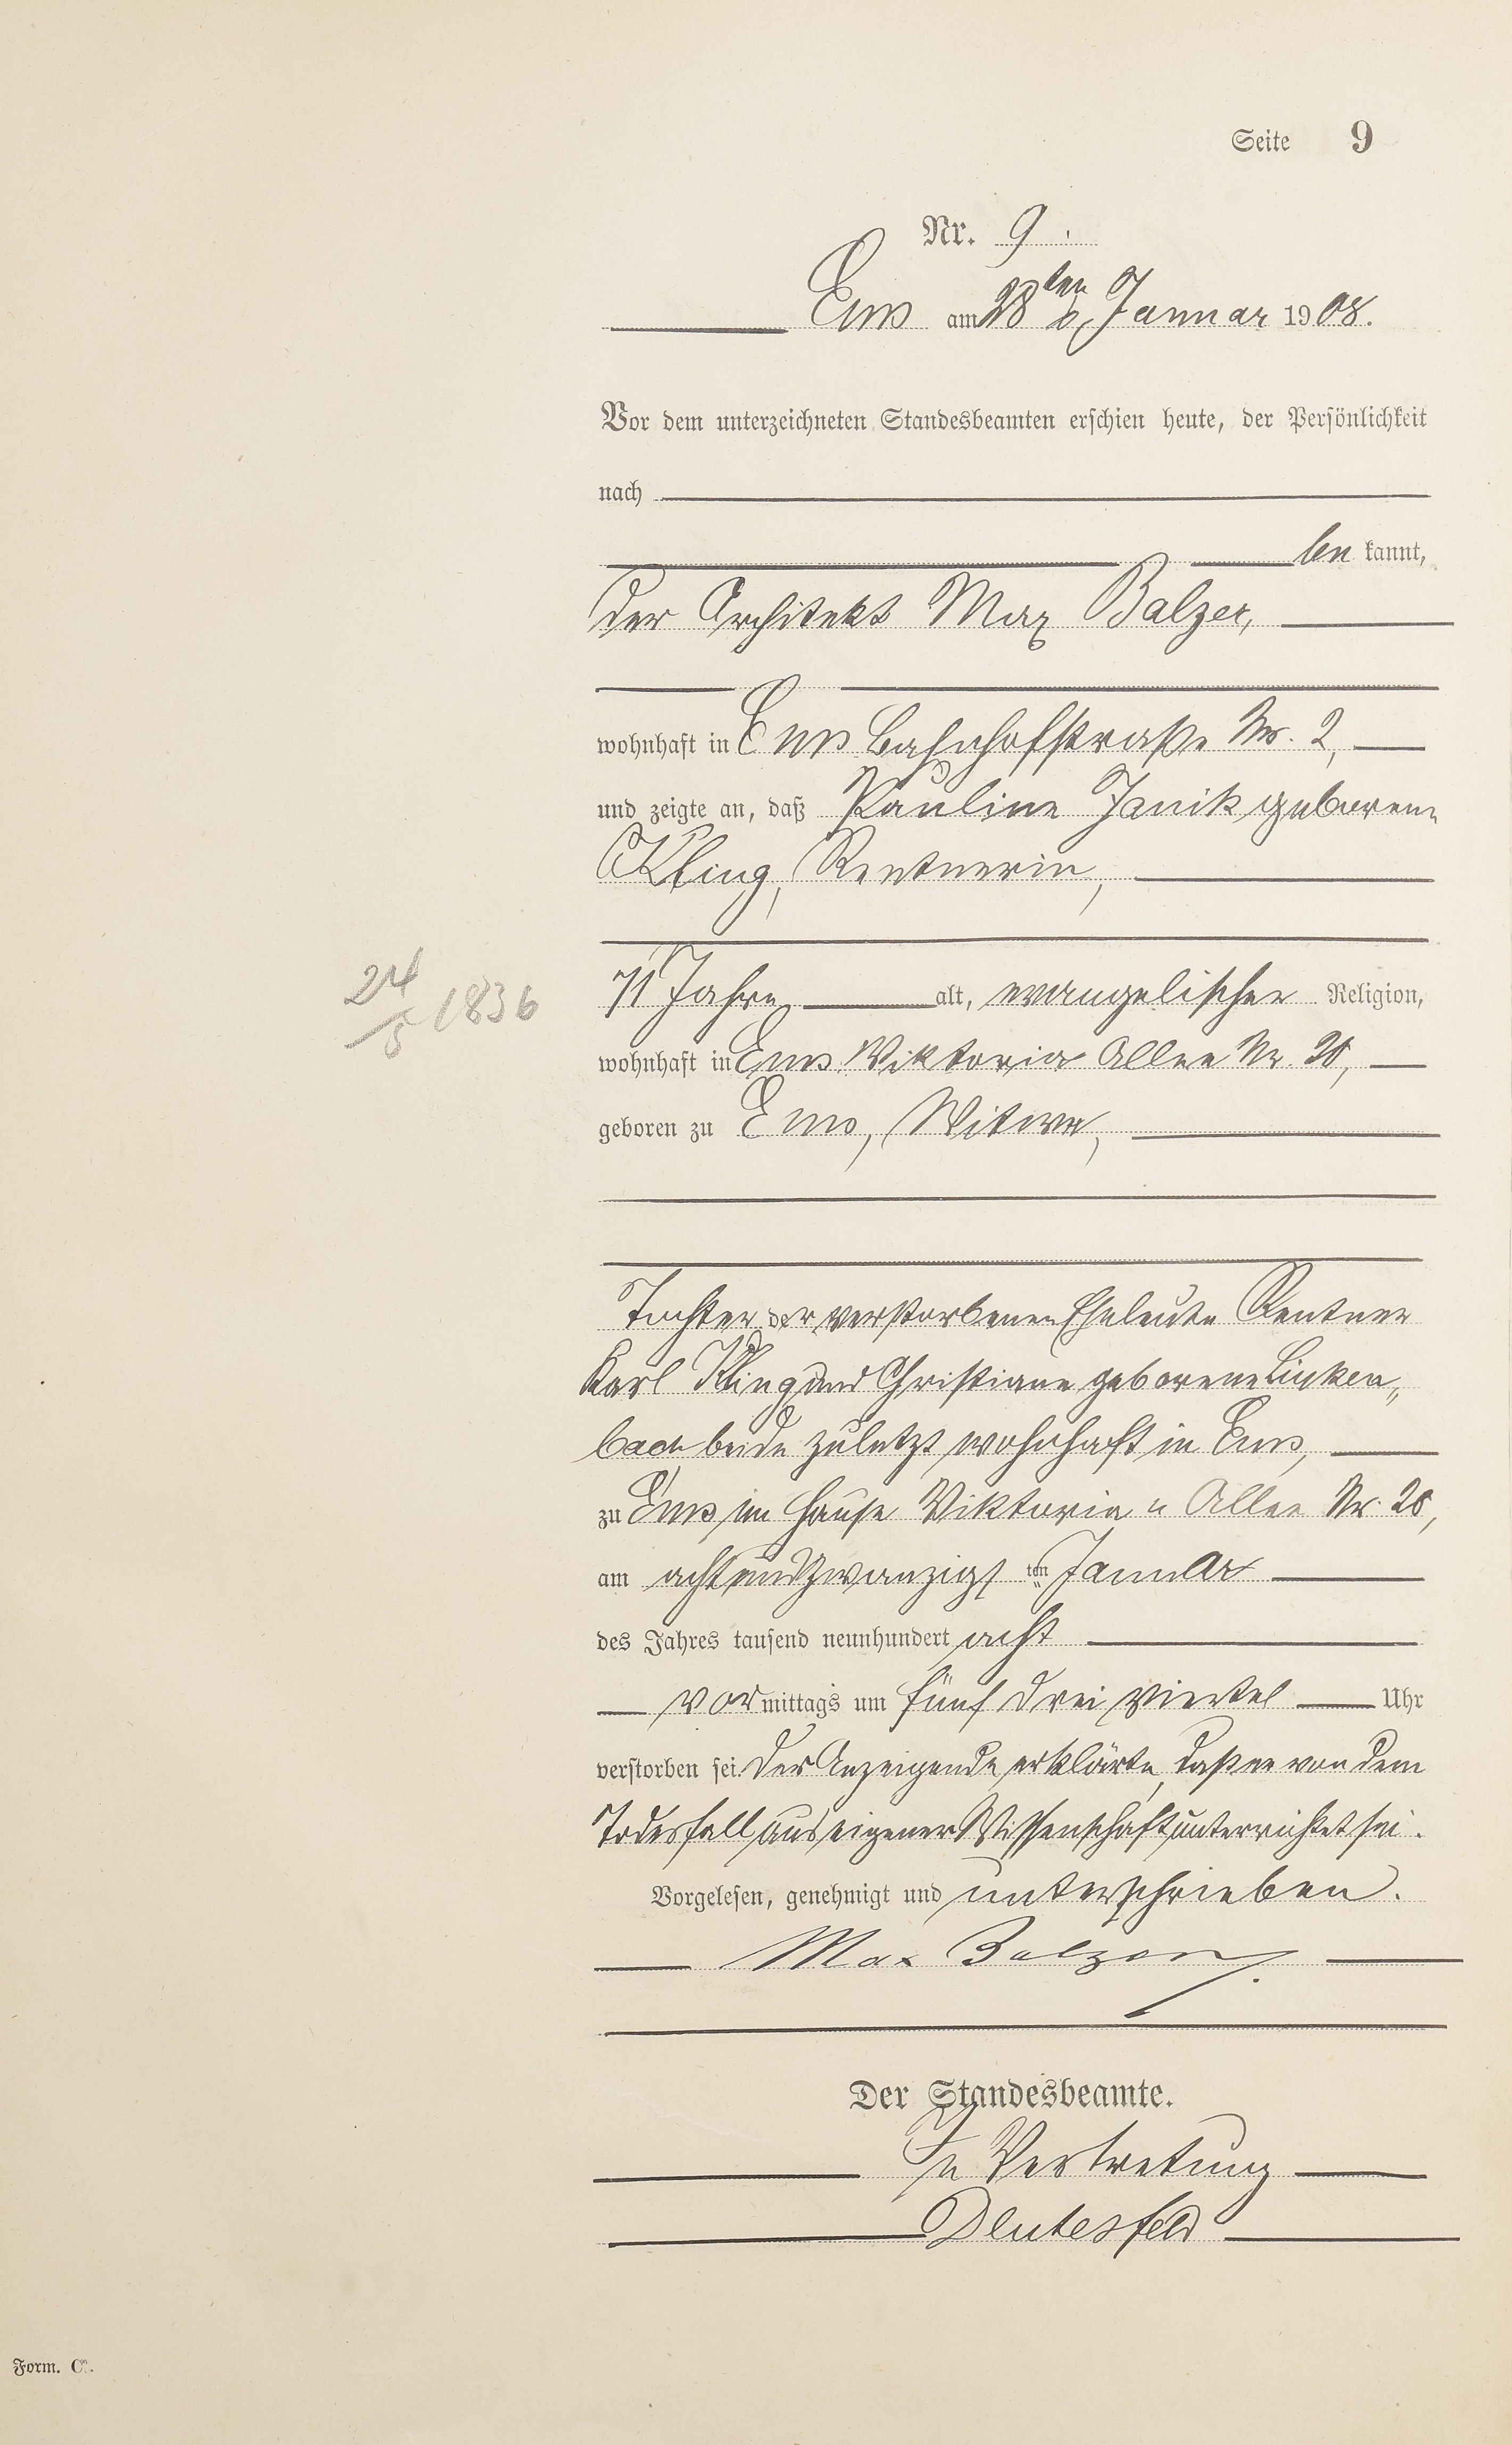 Seite 9
Nr. 9.
Ems am 28ten Januar 1908.
Vor dem unterzeichneten Standesbeamten erschien heute, der Persönlichkeit
nach
be kannt,
der Architekt Max Balzer,
wohnhaft in Ems Bahnhofstraße Nr. 2,
und zeigte an, daß Pauline Janik geborene
Kling, Rentnerin,
71 Jahre alt, evangelischer Religion,
24/5 1836
wohnhaft in Ems Viktoria Allee Nr. 20,
geboren zu Ems, Witwe,
Tochter der verstorbenen Eheleute Rentner
Karl Kling und Christiane geborene Linken„
bach beide zuletzt wohnhaft in Ems,
zu Ems, im Hause Viktoria „ Allee Nr. 20,
am achtundzwanzigsten Januar
des Jahres tausend neunhundert acht
vormittags um fünf drei viertel Uhr
verstorben sei. Der Anzeigende erklärte, daß er von dem
Todesfall aus eigener Wissenschaft unterrichtet sei.
Vorgelesen, genehmigt und unterschrieben.
Max Balzer
Der Standesbeamte.
In Vertretung
Form. C.